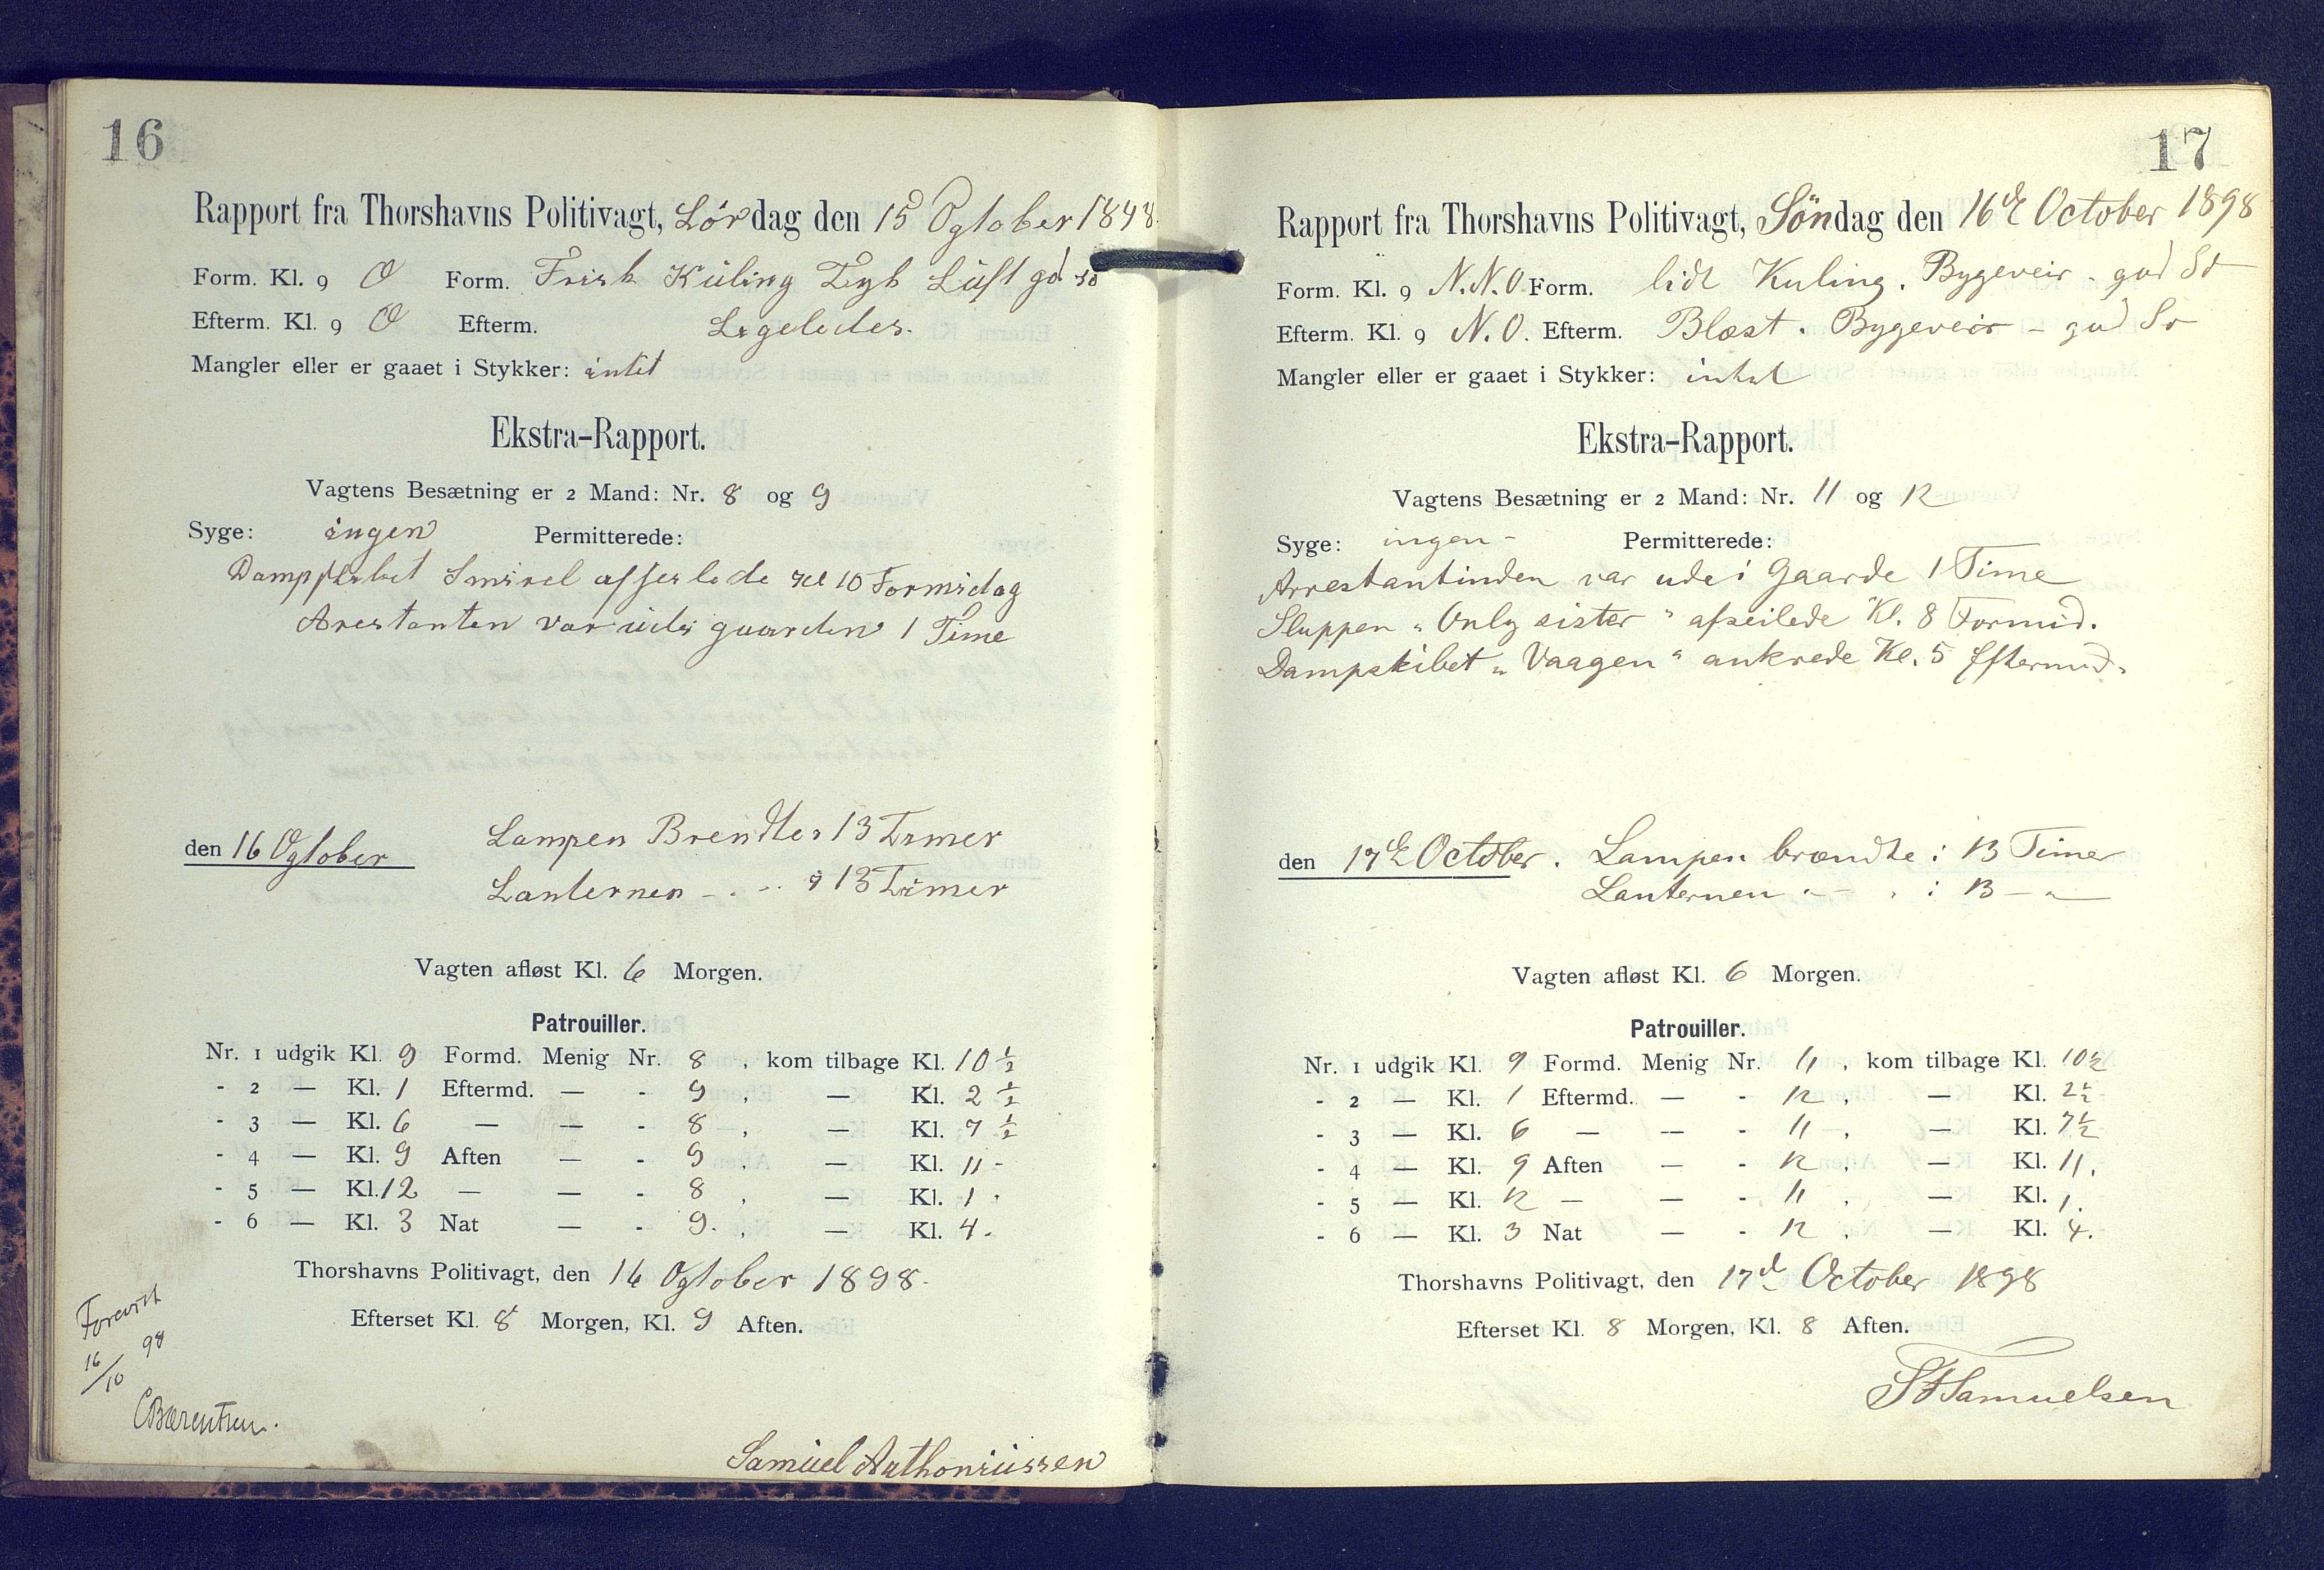 16
Rapport fra Thorshavns Politivagt, Lördag den 15 Ogtober 1898
Form. Kl. 9 O Form. Frisk Küling Tyk Lüft god sö
Efterm. Kl. 9 O Efterm. Ligeledes.
Mangler eller er gaaet i Stykker: intet
Ekstra-Rapport.
Vagtens Besætning er 2 Mand: Nr. 8 og 9
Syge: ingen Permitterede:
Dampskibet Smiril afseilede kl 10 Formidag
Arestanten var üdi gaarden 1 Time
den 16 Ogtober Lampen Brendte i 13 Timer
Lanternen - . - . i 13 Timer
Vagten afløst Kl. 6 Morgen.
Patrouiller.
Nr. 1 udgik Kl. 9 Formd. Menig Nr. 8, kom tilbage Kl. 10 ½
- 2 — Kl. 1 Eftermd. — - 9, — Kl. 2 ½
- 3 — Kl. 6 — — - 8, — Kl. 7 ½
- 4 — Kl. 9 Aften — - 9, — Kl. 11 -
- 5 — Kl. 12 — — - 8, — Kl. 1 .
- 6 — Kl. 3 Nat — - 9., — Kl. 4 .
Thorshavns Politivagt, den 16 Ogtober 1898.
Efterset Kl. 8 Morgen, Kl. 9 Aften.
Forevist
16/10 98
CBærentsen.
Samüel Anthoniüssen
17
Rapport fra Thorshavns Politivagt, Söndag den 16de October 1898
Form. Kl. 9 N.N.O Form. lidt Kuling. Bygeveir - god Sö
Efterm. Kl. 9 N.O. Efterm. Blæst. Bygeveir - god Sö
Mangler eller er gaaet i Stykker: intet
Ekstra-Rapport.
Vagtens Besætning er 2 Mand: Nr. 11 og 12
Syge: ingen - Permitterede:
Arrestantinden var ude i Gaarde 1 Time
Sluppen "Only sister" afseilede Kl. 8 Formid.
Dampskibet "Vaagen" ankrede Kl. 5 Eftermid.
den 17de October. Lampen brændte i 13 Timer
Lanternen " — " i 13 — "
Vagten afløst Kl. 6 Morgen.
Patrouiller.
Nr. 1 udgik Kl. 9 Formd. Menig Nr. 11, kom tilbage Kl. 10½
- 2 — Kl. 1 Eftermd. — - 12, — Kl. 2½
- 3 — Kl. 6 — — - 11, — Kl. 7½
- 4 — Kl. 9 Aften — - 12, — Kl. 11.
- 5 — Kl. 12 — — - 11, — Kl. 1.
- 6 — Kl. 3 Nat — - 12, — Kl. 4.
Thorshavns Politivagt, den 17d October 1898
Efterset Kl. 8 Morgen, Kl. 8 Aften.
SFSamuelsen